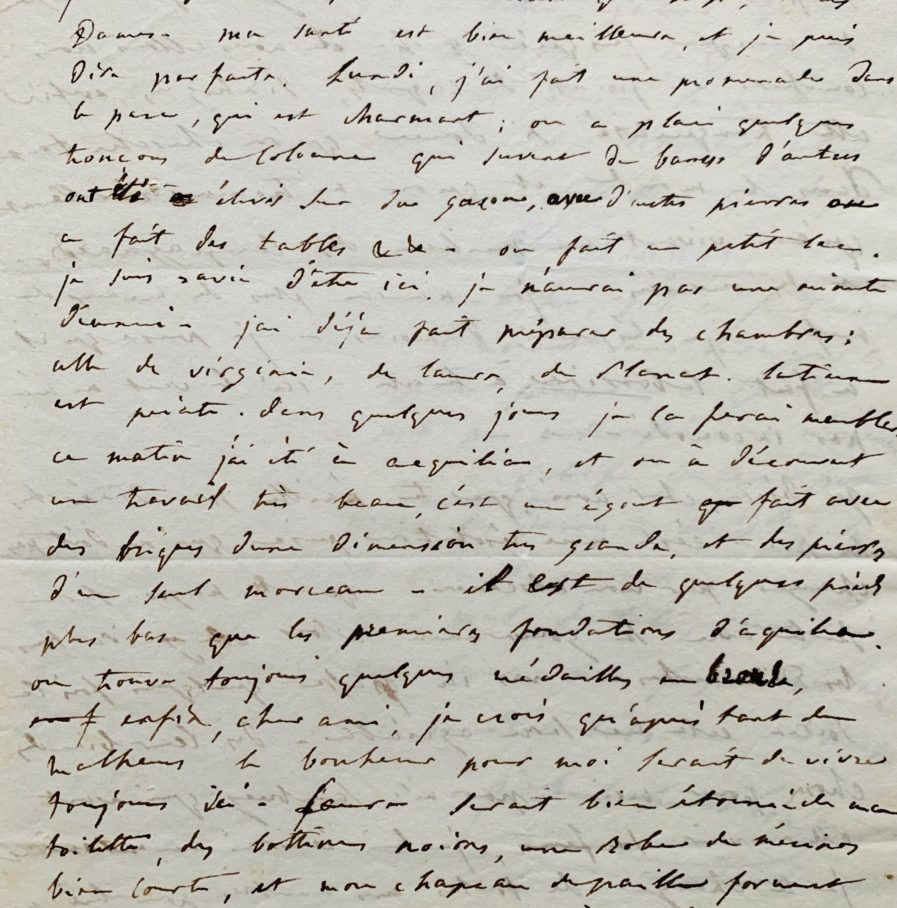 ma santé est bien meilleure, et je puis
dire parfaite. Lundi, j'ai fait une promenade dans
le parc, qui est charmant; on a placé quelques
tronçons de colonne qui servent de bancs d'autres
ont été élevés sur du gazon, avec d'autres pierres on
a fait des tables &c - on fait un petit lac.
je suis ravie d'être ici, je n'aurai pas une minute
d'ennui - j'ai déjà fait préparer des chambres:
celle de virginie, de laure, de
est prête. dans quelques jours je la ferai meubler
ce matin j'ai été à acquilée, et on a découvert
un travail très beau, c'est un égout fait avec
des briques d'une dimension très grande, et des pierres
d'un seul morceau - il est de quelques pieds
plus bas que les premières fondations d'aquilée.
on trouve toujours quelques médailles en
enfin, cher ami, je crois qu'après tant de
malheurs le bonheur pour moi serait de vivre
toujours ici - serait bien étonnée de ma
toilette, des bottines noires, une robe de mérinos
bien courte, et mon chapeau de paille forment